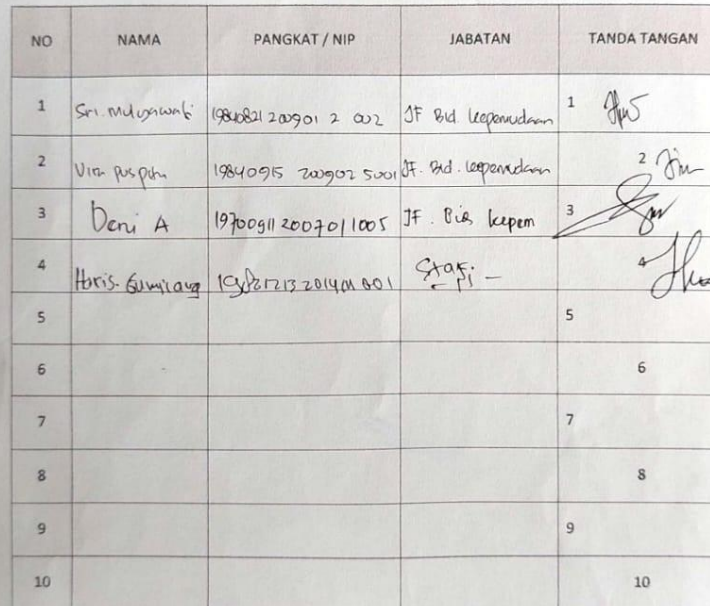 NO NAMA PANGKAT / NIP JABATAN TANDA TANGAN
1 Sri. Mulyawati 19840821 200901 2 002 JF Bid kepemudaan 1
2 Vira puspita 19840915 200902 5001 JF. Bid. kepemudaan 2
3 Deni A 19700911 2007011005 JF. Bid kepem 3
4 Haris. Gumilang 201401 001 Staf 4
5 5
6 6
7 7
8 8
9 9
10 10